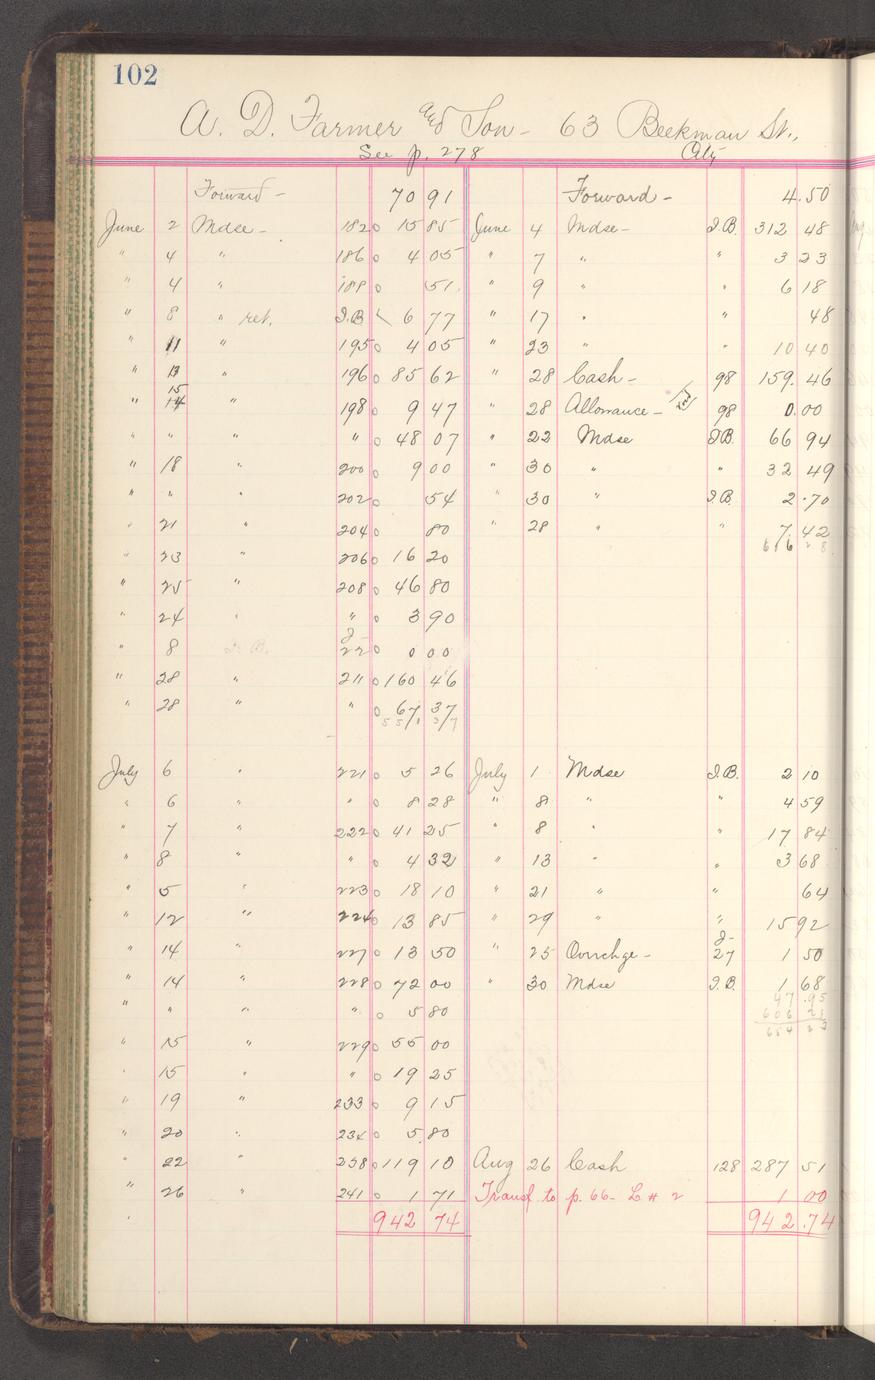 102
A. D. Farmer and Son - 63 Beekman St.,
See p. 278 City
Forward - 70 91 Forward - 4.50
June 2 Mdse - 182 0 15 85 June 4 Mdse - I.B. 312 48
" 4 " 186 0 4 05 " 7 " " 3 23
" 4 " 188 0 51 " 9 " " 6 18
" 8 " ret. I.B. 6 77 " 17 " " 48
" 11 " 195 0 4 05 " 23 " " 10 40
" 13 " 196 0 85 62 " 28 Cash - 98 159. 46
" 15 " 198 0 9 47 " 28 Allowance - 98 0.00
" " " " 0 48 07 " 22 Mdse I.B. 66 94
" 18 " 200 0 9 00 " 30 " " 32 49
" " " 202 0 54 " 30 " I.B. 2.70
" 21 " 204 0 80 " 28 " " 7.42
606 28
" 23 " 206 0 16 20
" 25 " 208 0 46 80
" 24 " " 0 3 90
" 8 I.B. J- 22 0 0 00
" 28 " 211 0 160 46
" 28 " " 0 67 37
551 37
July 6 " 221 0 5 26 July 1 Mdse I.B. 2 10
" 6 " " 0 8 28 " 8 " " 4 59
" 7 " 222 0 41 25 " 8 " " 17 84
" 8 " " 0 4 32 " 13 " " 3 68
" 5 " 223 0 18 10 " 21 " " 64
" 12 " 224 0 13 85 " 29 " " 15 92
" 14 " 227 0 13 50 " 25 Ovrchge - J- 27 1 50
" 14 " 228 0 72 00 " 30 Mdse I.B. 1 68
47.95
" " " " 0 5 80
606 28
654 23
" 15 " 229 0 55 00
" 15 " " 0 19 25
" 19 " 233 0 9 15
" 20 " 234 0 5.80
" 22 " 238 0 119 10 Aug 26 Cash 128 287 51
" 26 " 241 0 1 71 Transf. to p. 66 - L # 2 1 00
942 74 942.74